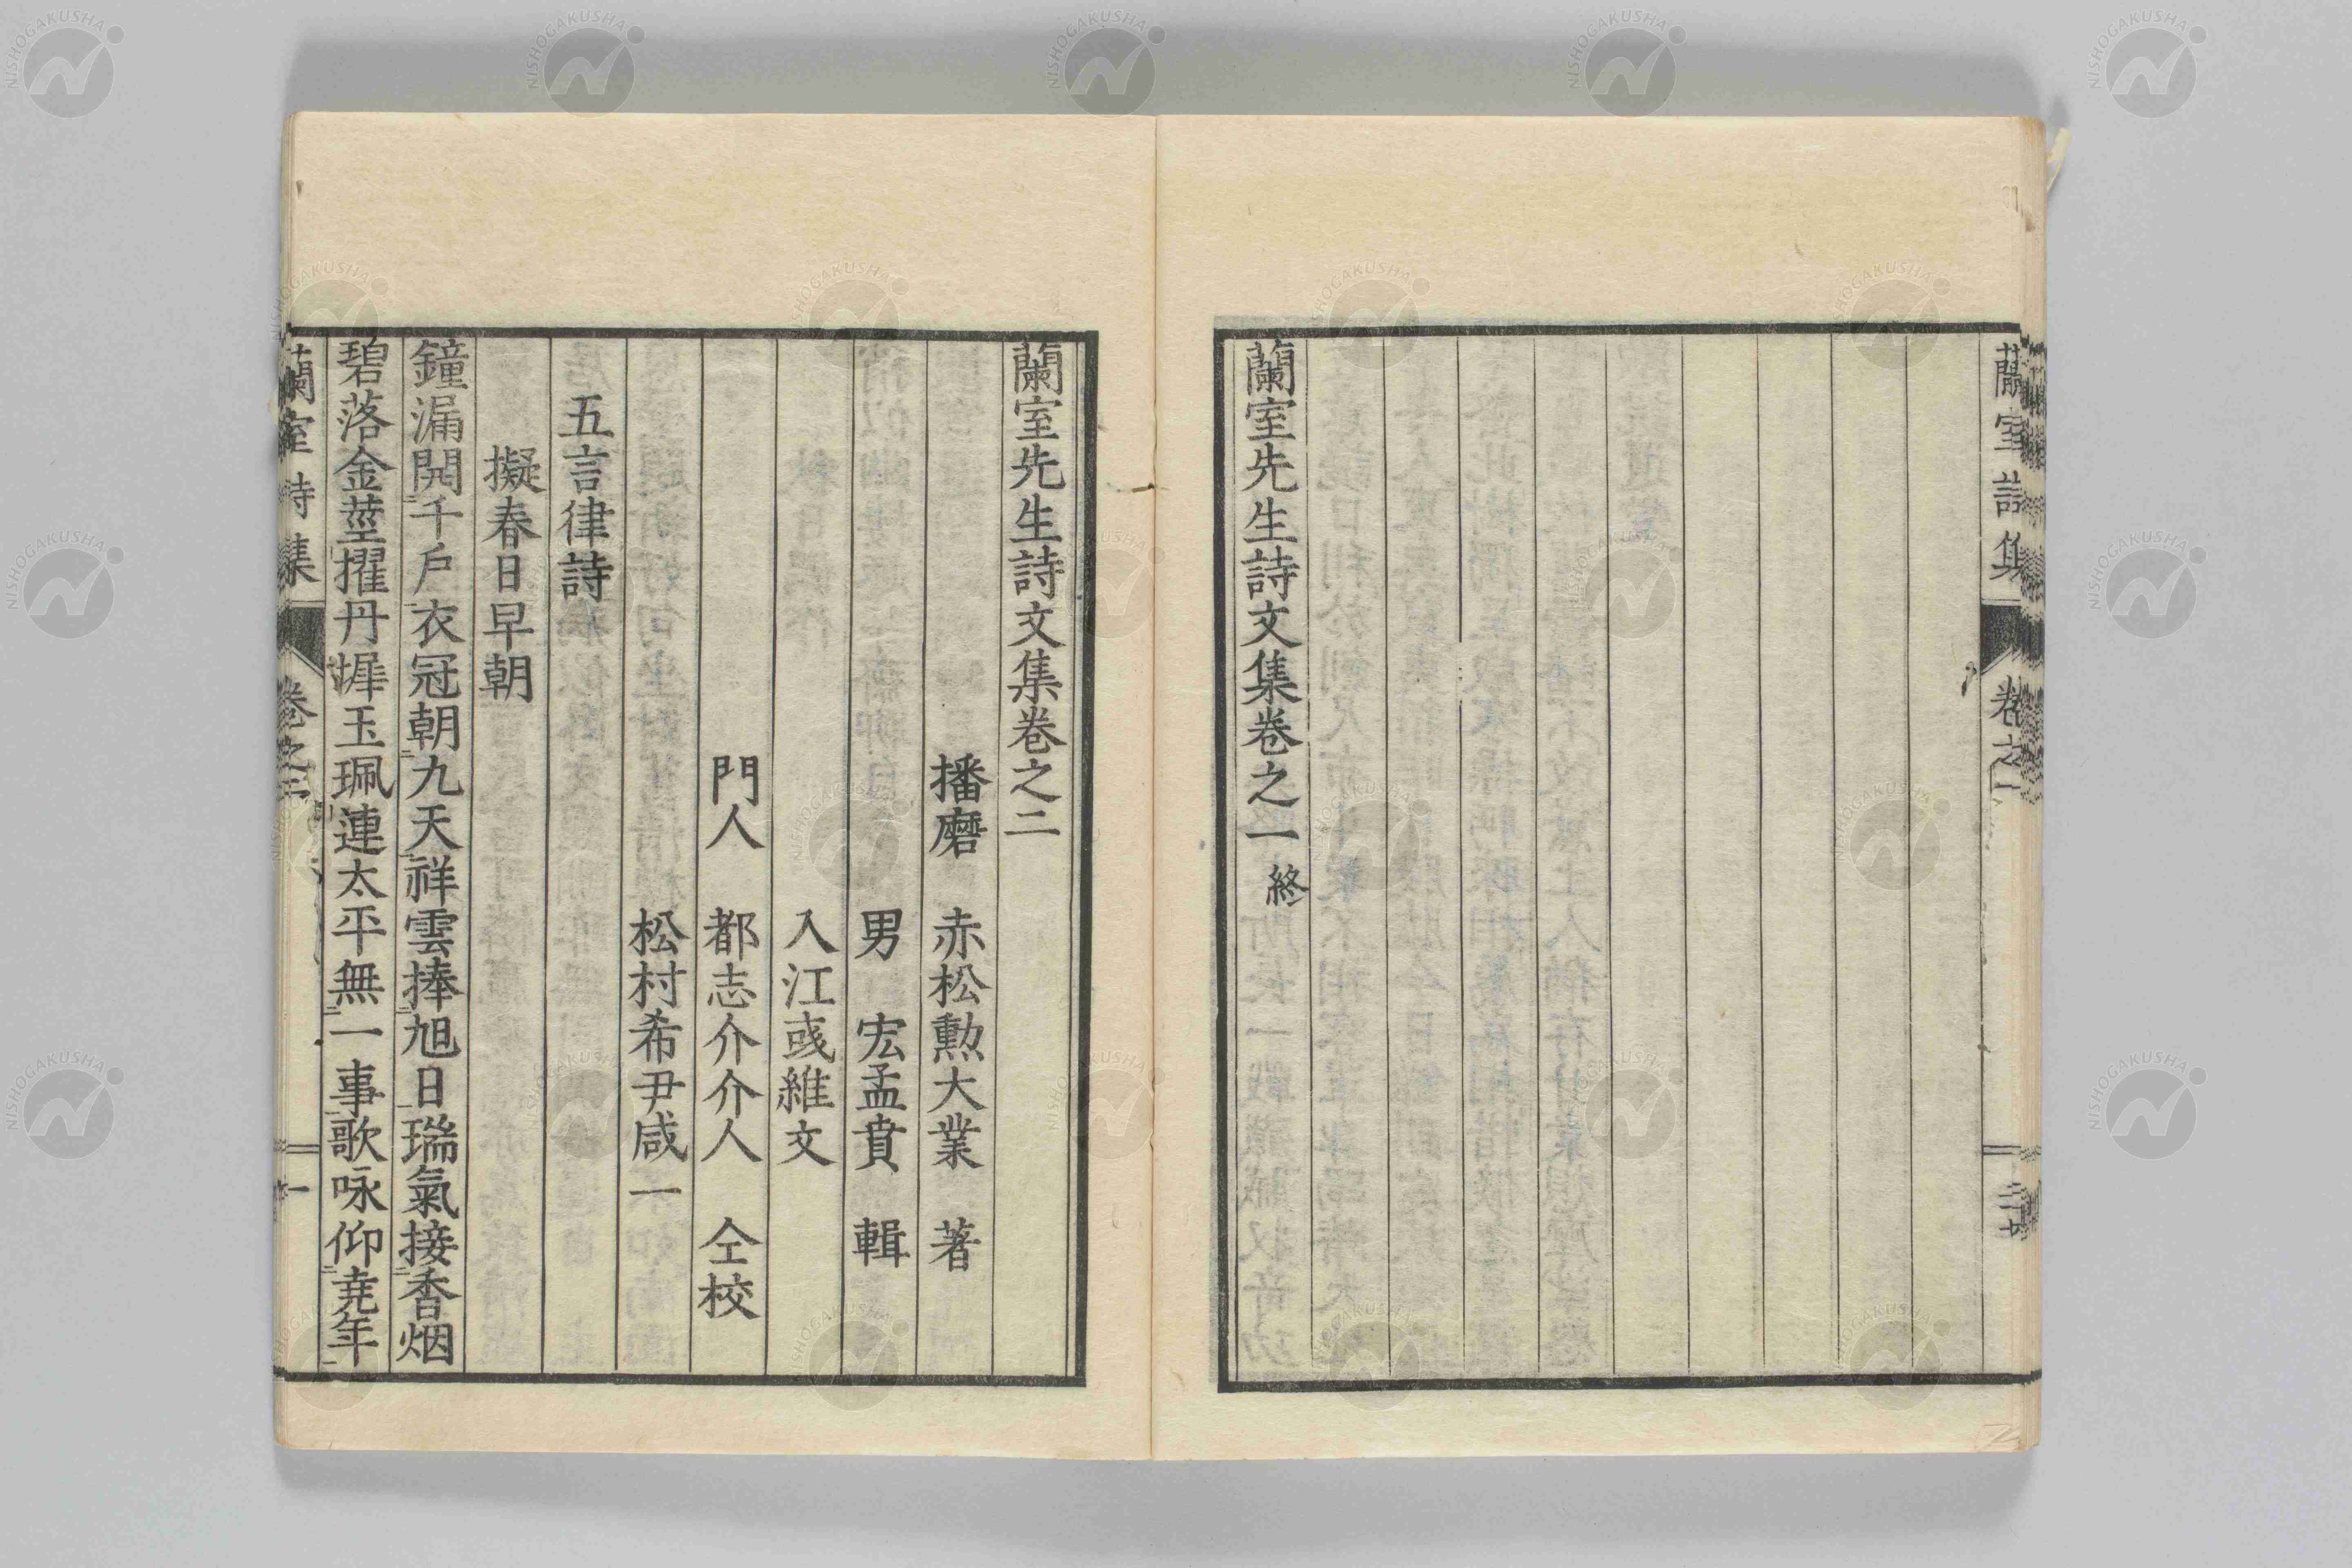 蘭室詩集　卷之一
蘭室先生詩文集卷之一終
蘭室先生詩文集卷之二
播磨　赤松勲大業　著
男　宏孟賁　輯
入江彧維文
門人　都志介介人　仝校
松村希尹咸一
五言律詩
擬春日早朝
鐘漏開千戶衣冠朝九天祥雲捧旭日瑞氣接香烟
碧落金莖擢丹墀玉珮連太平無一事歌咏仰堯年
蘭室詩集　卷之二　一
NISHOGAKUSHA